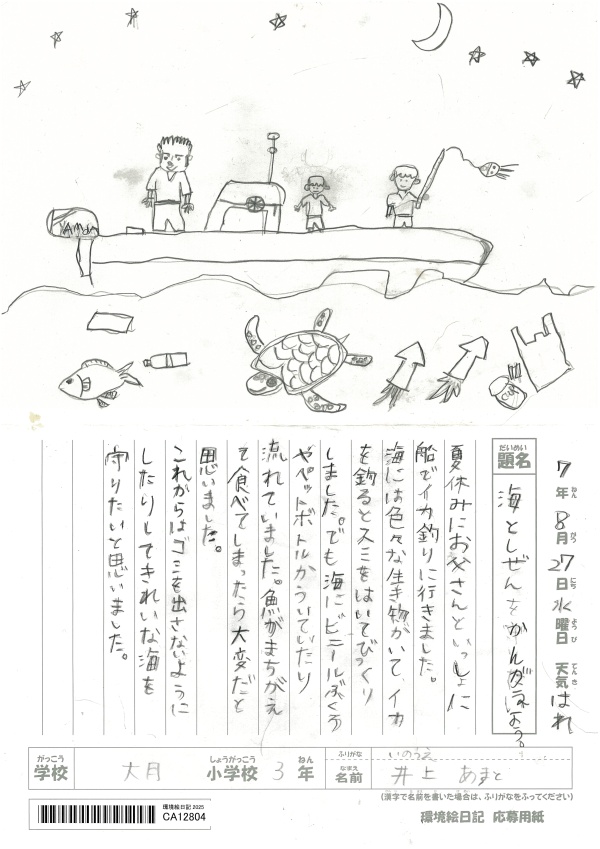 YAMAHA
7年8月27日水曜日 天気はれ
ねん がつ にち ようび てんき
だいめい
題名
海としぜんをかんがえよう。
夏休みにお父さんといっしょに
船でイカ釣りに行きました。
海には色々な生き物がいて、イカ
を釣るとスミをはいてびっくり
しました。でも海にビニールぶくろ
やペットボトルがういていたり
流れていました。魚がまちがえ
て食べてしまったら大変だと
思いました。
これからはゴミを出さないように
したりしてきれいな海を
守りたいと思いました。
がっこう しょうがっこう ねん
学校 大月 小学校 3年
ふりがな いのうえ
なまえ
名前 井上 あまと
(漢字で名前を書いた場合は、ふりがなをふってください)
環境絵日記 2025
CA12804
環境絵日記 応募用紙